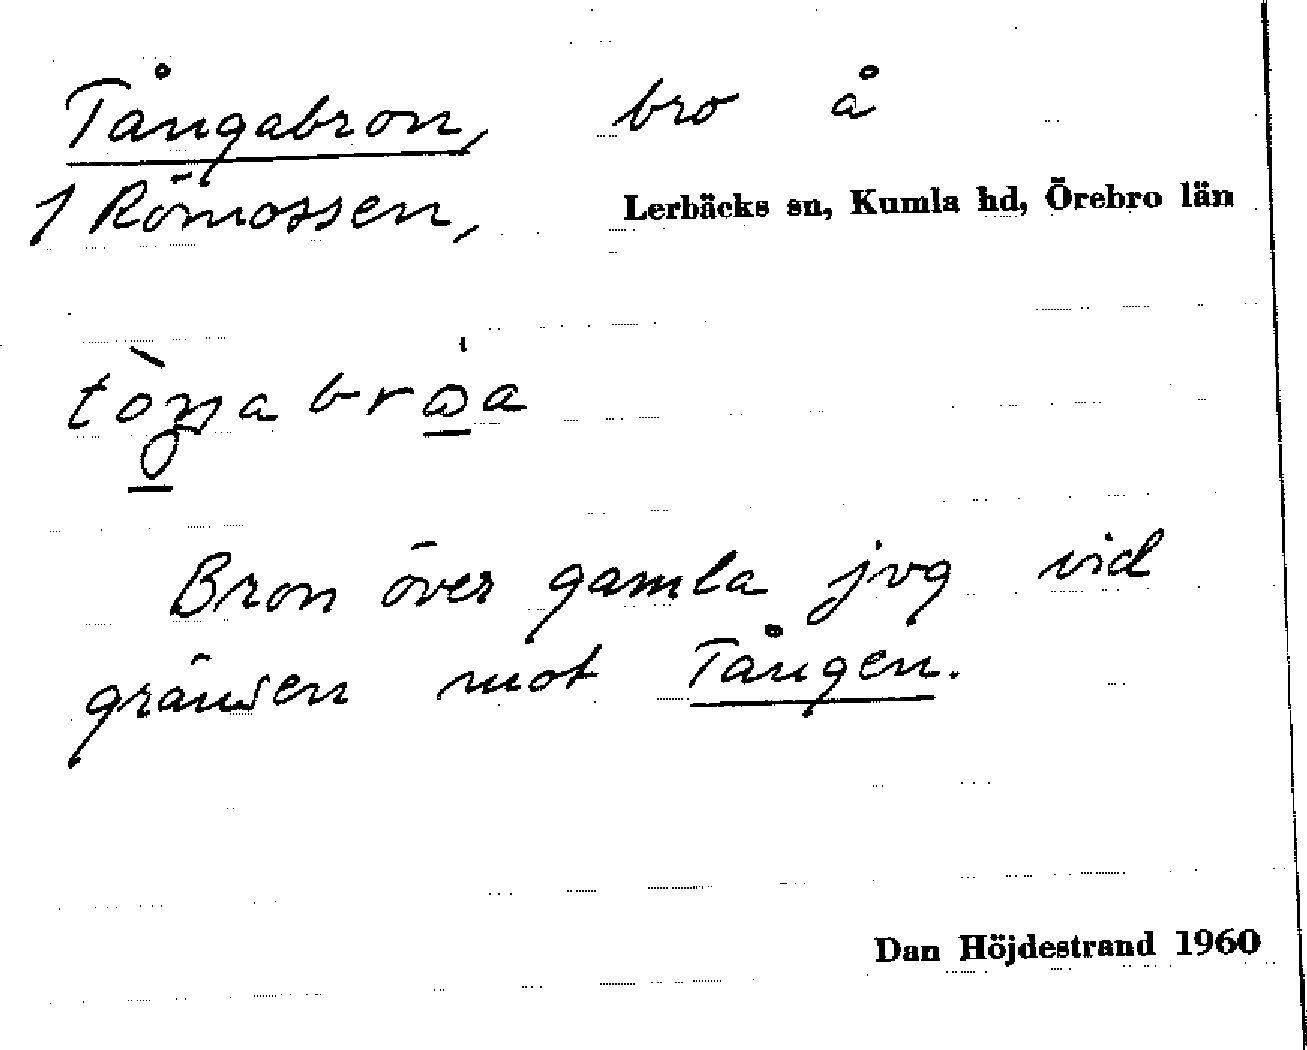 Tångabron, bro å
1 Römossen, Lerbäcks sn, Kumla hd, Örebro län
Bron över gamla jvg vid
gränsen mot Tången.
Dan Höjdestrand 1960